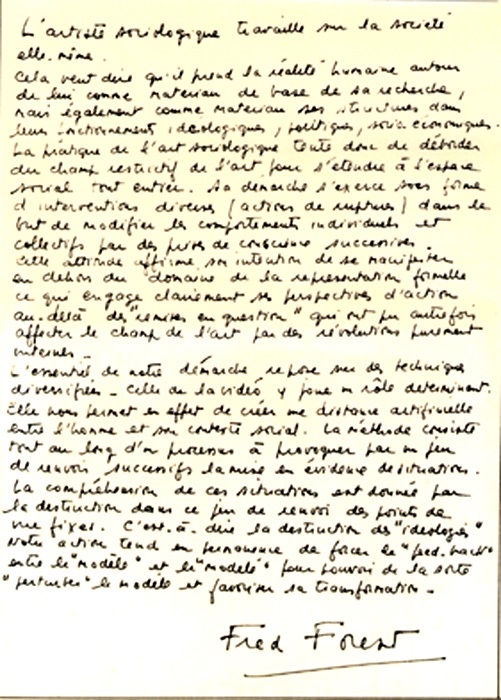 L'artiste sociologique travaille sur la société
elle-même.
Cela veut dire qu'il prend la réalité humaine autour
de lui comme matériau de base de sa recherche,
mais également comme matériau ses structures dans
leurs fonctionnements idéologiques, politiques, socio-économiques.
La pratique de l'art sociologique tente donc de déborder
du champ restrictif de l'art pour s'étendre à l'espace
social tout entier. Sa démarche s'exerce sous forme
d'interventions diverses (actions de ruptures) dans le
but de modifier les comportements individuels et
collectifs par des prises de conscience successives.
Cette attitude affirme son intention de se manifester
en dehors du "domaine de la représentation formelle
ce qui engage clairement ses perspectives d'action
au-delà des "remises en question" qui ont pu autrefois
affecter le champ de l'art par des révolutions purement
internes -
L'essentiel de notre démarche repose sur des techniques
diversifiées - Celle de la vidéo y joue un rôle déterminant.
Elle nous permet en effet de créer une distance artificielle
entre l'homme et son contexte social. La méthode consiste
tout au long d'un processus à provoquer par un jeu
de renvois successifs la mise en évidence de situations.
La compréhension de ces situations est donnée par
la destruction dans ce jeu de renvoi des points de
vue fixes. C'est-à-dire la destruction des "idéologies"
Notre action tend en permanence de forcer le "feed-back"
entre le "modèle" et le "modelé" pour pouvoir de la sorte
"perturber" le modèle et favoriser sa transformation -
Fred Forest